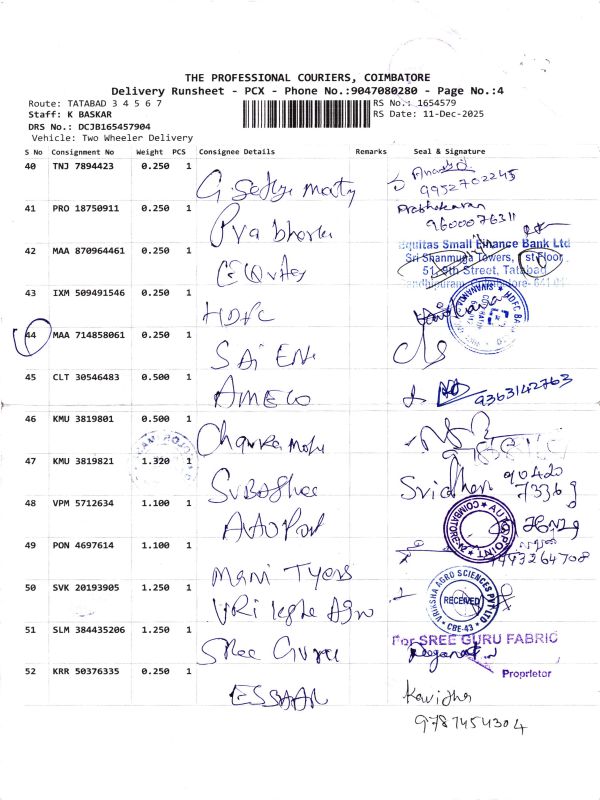 THE PROFESSIONAL COURIERS, COIMBATORE
Delivery Runsheet - PCX - Phone No.:9047080280 - Page No.:4
Route: TATABAD 3 4 5 6 7 RS No.: 1654579
Staff: K BASKAR RS Date: 11-Dec-2025
DRS No.: DCJB165457904
Vehicle: Two Wheeler Delivery
S No Consignment No Weight PCS Consignee Details Remarks Seal & Signature
40 TNJ 7894423 0.250 1 G. Sathya 9952702245
41 PRO 18750911 0.250 1 Prabhakaran 9600076311
42 MAA 870964461 0.250 1 Equitas Small Finance Bank Ltd
Sri Shanmuga Towers, I st Floor
51, 9th Street, Tatabad
43 IXM 509491546 0.250 1 HDFC HDFC BA
44 MAA 714858061 0.250 1 SAi
45 CLT 30546483 0.500 1 AMECO 9363142763
46 KMU 3819801 0.500 1
47 KMU 3819821 1.320 1 Sridhar 90420
48 VPM 5712634 1.100 1 AUTO POINT COIMBATORE
49 PON 4697614 1.100 1 Mani Tyers 9993264708
50 SVK 20193905 1.250 1 VRIKSHA AGRO SCIENCES PVT LTD
RECEIVED
CBE-43
51 SLM 384435206 1.250 1 Sree Guru For SREE GURU FABRIC
Proprietor
52 KRR 50376335 0.250 1 ESSAAR Kavitha
9787454304